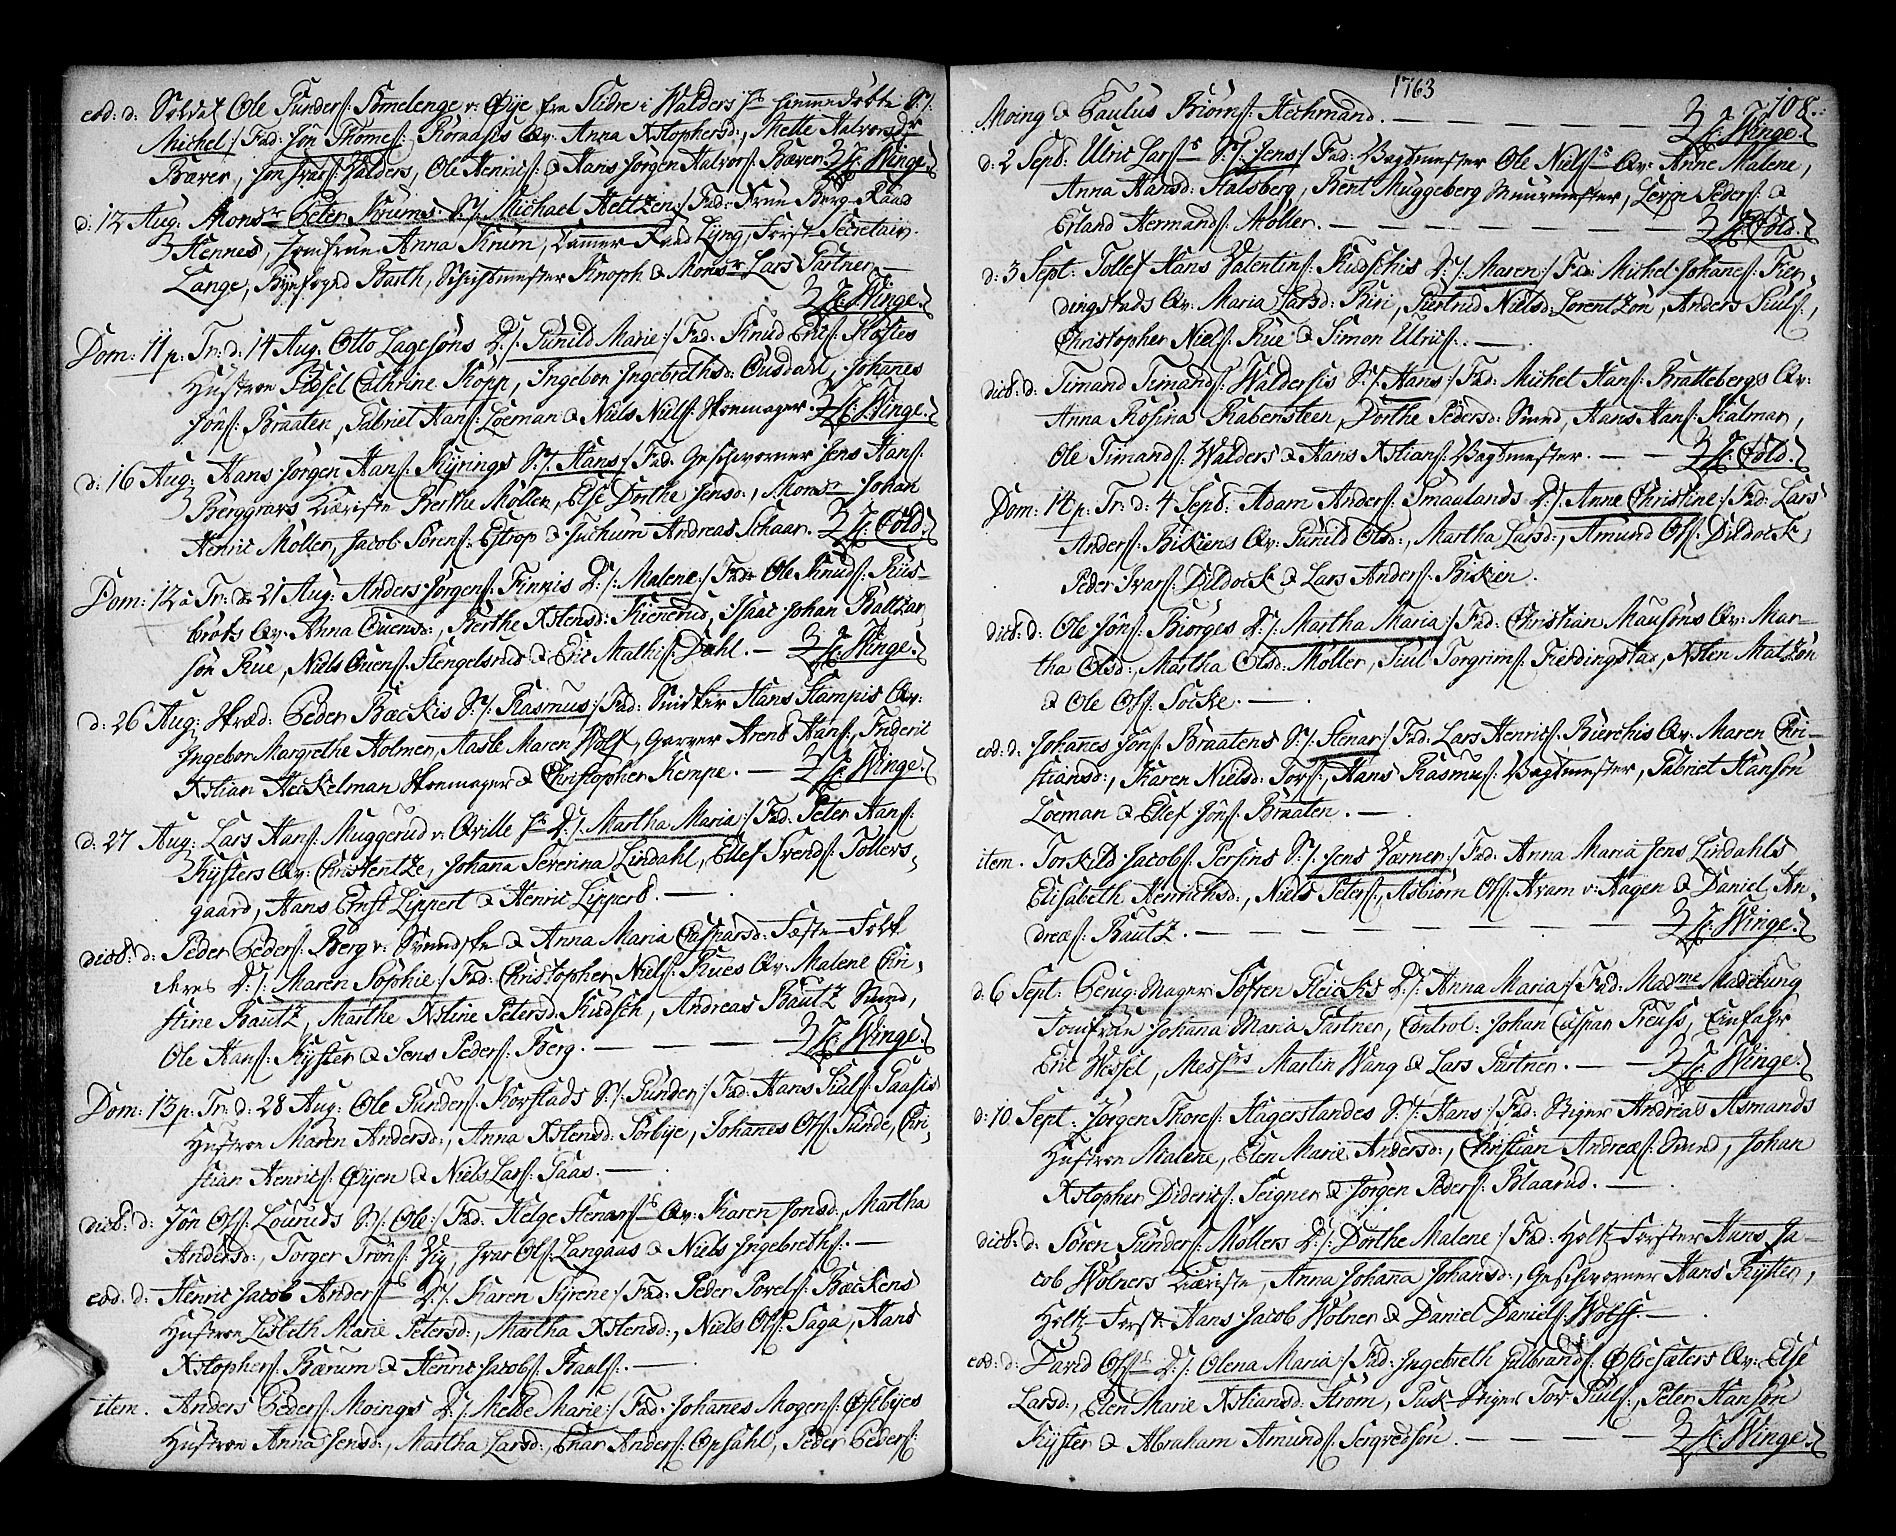 eod: d: Soldat Ole Gunders: Smelenge v: Øye fra Slidre i Walders
Michel /: Fad: Jøn Thomes: Roraasis Qv: Anna Xstophersd:, Mette Halvorsdr
Bærer, Jon Ivars: Walders, Ole Henrics: & Hans Jørgen Halvors: Bæver. H: Winge.
d: 12 Aug: Monsr Peter Krums S: /: Michael Heltzen /: Fad: Frue Berg-Raad
Hennes, Jomfrue Anna Krum, Cammer-Raad Lyng, Forst-Secretair
Lange, Byefoged Barth, Schichtmester Knoph & Monsr Lars Gartner
H: Winge.
Dom: 11 p: Tr: d: 14 Aug: Otto Lagesøns D: /: Gunild Marie /: Fad: Knud Erics: Kostes
Hustroe Sidsel Cathrine Kopp, Ingebor Ingebrethsd: Ousdahl, Johanes
Jøns: Braaten, Gabriel Hans: Loeman & Niels Niels: Skoemager. H: Winge.
d: 16 Aug: Hans Jørgen Hans: Kyrings S: /: Hans /: Fad: Geschworner Jens Hans:
Berggravs Kiæriste Berthe Møller, Else Dorthe Jensd:, Monsr Johan
Henric Møller, Jacob Sørens: Estrop & Juchum Andreas Schaar. H: Cold.
Dom: 12 a Tr: d: 21 Aug: Anders Jørgens: Finnis D: /: Malene /: Fad: Ole Knuds: Riis-
broks Qv: Anna Ouensd:, Berthe Xstensd: Kiererud, Isaac Johan Baltzar-
søn Rue, Niels Ouens: Stengelsrud & Eric Mathis: Dahl. H: Winge.
d: 26 Aug: Skræd: Peder Bæckis S: /: Rasmus /: Fad: Snidker Hans Stampis Qv:
Ingebor Margrethe Holmen, Aasle Maren Wolf, Garver Arent Hans:, Friderik
Xstian Heckelman Skoemager & Christopher Kempe. H: Winge.
d: 27 Aug: Lars Hans: Muggerud v: Qville D: /: Martha Maria /: Fad: Peter Hans:
Kysters Qv: Christentze, Johana Severina Lindahl, Ellef Svends: Tollers-
gaard, Hans Ernst Lippert & Henric Lippert.
dict: d: Peder Peders: Berg v: & Anna Maria Caspersd: Fæste-Folk
deres D: /: Maren Sophie /: Fad: Christopher Niels: Rues Qv: Malene Chri-
stine Bautz, Marthe Xstine Petersd: Kudsch, Andreas Bautz Smed,
Ole Hans: Kyster & Jens Peders: Berg. H: Winge.
Dom: 13 p: Tr: d: 28 Aug: Ole Gunders: Korslads S: /: Gunder /: Fad: Hans Siuls: Gaasis
Hustroe Maren Andersd:, Anna Xstensd: Sorbye, Johanes Ols: Gunde, Chri-
stian Henrics: Øyen & Niels Lars: Gaas.
dict: d: Jøn Ols: Louruds S: /: Ole /: Fad: Helge Stenars: Qv: Karen Jonsd:, Martha
Andersd:, Torger Trøns: Vig, Ivar Ols: Langaas & Niels Ingebreths:
eod: d: Henric Jacob Anders: D: /: Karen Kyrene /: Fad: Peder Povels: Bæckens
Hustroe Lisbeth Marie Petersd:, Martha Xstensd:, Niels Ols: Saga, Hans
Xstophers: Bærum & Henric Jacobs: Baals:
item. Anders Peders: Moings D: /: Mette Marie /: Fad: Johanes Mogens: Ostbyes
Hustroe Anna Jensd:, Martha Larsd:, Einar Anders: Opsahl, Peder Peders:
1763
108.
Moing & Paulus Biørns: Hechmand. H: Winge.
d: 2 Sept: Ulric Lars: S: /: Jens /: Fad: Vagtmester Ole Niels: Qv: Anne Malene,
Anna Hansd: Stalsberg, Bent Muggeberg Muurmester, Peders: &
Erland Hermands: Møller. H: Cold.
d: 3 Sept: Tollef Hans Valentins: Kudschis D: /: Maren /: Fad: Michel Johanes: Fier-
dingstads Qv: Maria Larsd: Riri, Giertrud Nielsd: Lorentzøn, Anders Siuls:,
Christopher Niels: Rue & Simon Ulrics:
dict: d: Timand Timands: Waldersis S: /: Hans /: Fad: Michel Hans: Brattebergs Qv:
Anna Rosina Rabensteen, Dorthe Pedersd: Smed, Hans Hans: Kalman,
Ole Timands: Walders & Hans Xstians: Vagtmester. H: Cold.
Dom: 14 p: Tr: d: 4 Sept: Adam Anders: Smaalands D: /: Anne Christine /: Fad: Lars
Anders: Biskiens Qv: Gunild Olsd:, Martha Larsd:, Amund Ols: Dildock,
Peder Ivars: Dildock & Lars Anders: Biskien.
dict: d: Ole Jøns: Biørges D: /: Martha Maria /: Fad: Christian Mausøns Qv: Mar-
tha Olsd:, Martha Olsd: Møller, Siul Torgrims: Fierdingstad, Xsten Matzøn
& Ole Ols: Socke.
eod: d: Johanes Jøns: Braatens S: /: Stenar /: Fad: Lars Henrics: Buerchis Qv: Maren Chri-
stiansd:, Karen Nielsd: Tors:, Hans Rasmus: Vagtmester, Gabriel Hansøn
Loeman & Ellef Jøns: Braaten.
item. Torkild Jacobs: Persins S: /: Jens Værner /: Fad: Anna Maria Jens Lindahls
Elisabeth Henrichsd:, Niels Peters:, Asbiørn Ols: Hvam v: Hagen & Daniel An-
dreæs: Bautz. H: Winge.
d: 6 Sept: Perug-Mager Søfren Fleicks D: /: Anna Maria /: Fad: Madme Madelung
Jomfrue Johana Maria Gartner, Control: Johan Caspar Preuss, Einfahr
Eric Wessel, Messrs Martin Wang & Lars Gartner. H: Winge.
d: 10 Sept: Jørgen Thores: Hagerstandes S: /: Hans /: Fad: Stiger Andreas Asmands
Hustroe Malene, Elen Marie Andersd:, Christian Andreæs: Smed, Johan
Xstopher Diderics: Seigner & Jørgen Peders: Blaarud.
dict: d: Søren Gunders: Møllers D: /: Dorthe Malene /: Fad: Holtz-Forster Hans Ja-
cob Wølners Kiæriste, Anna Johana Johansd:, Geschworner Hans Kyster,
Holtz-Forst: Hans Jacob Wølner & Daniel Daniels: Wolff.
eod: d: David Ols: D: /: Olena Maria /: Fad: Ingebreth Gulbrands: Ostesæters Qv: Else
Larsd:, Elen Marie Xstiansd: Strøm, Puk-Stiger Tor Siuls:, Peter Hansøn
Kyster & Abraham Amunds: Sergvedsøn. H: Winge.